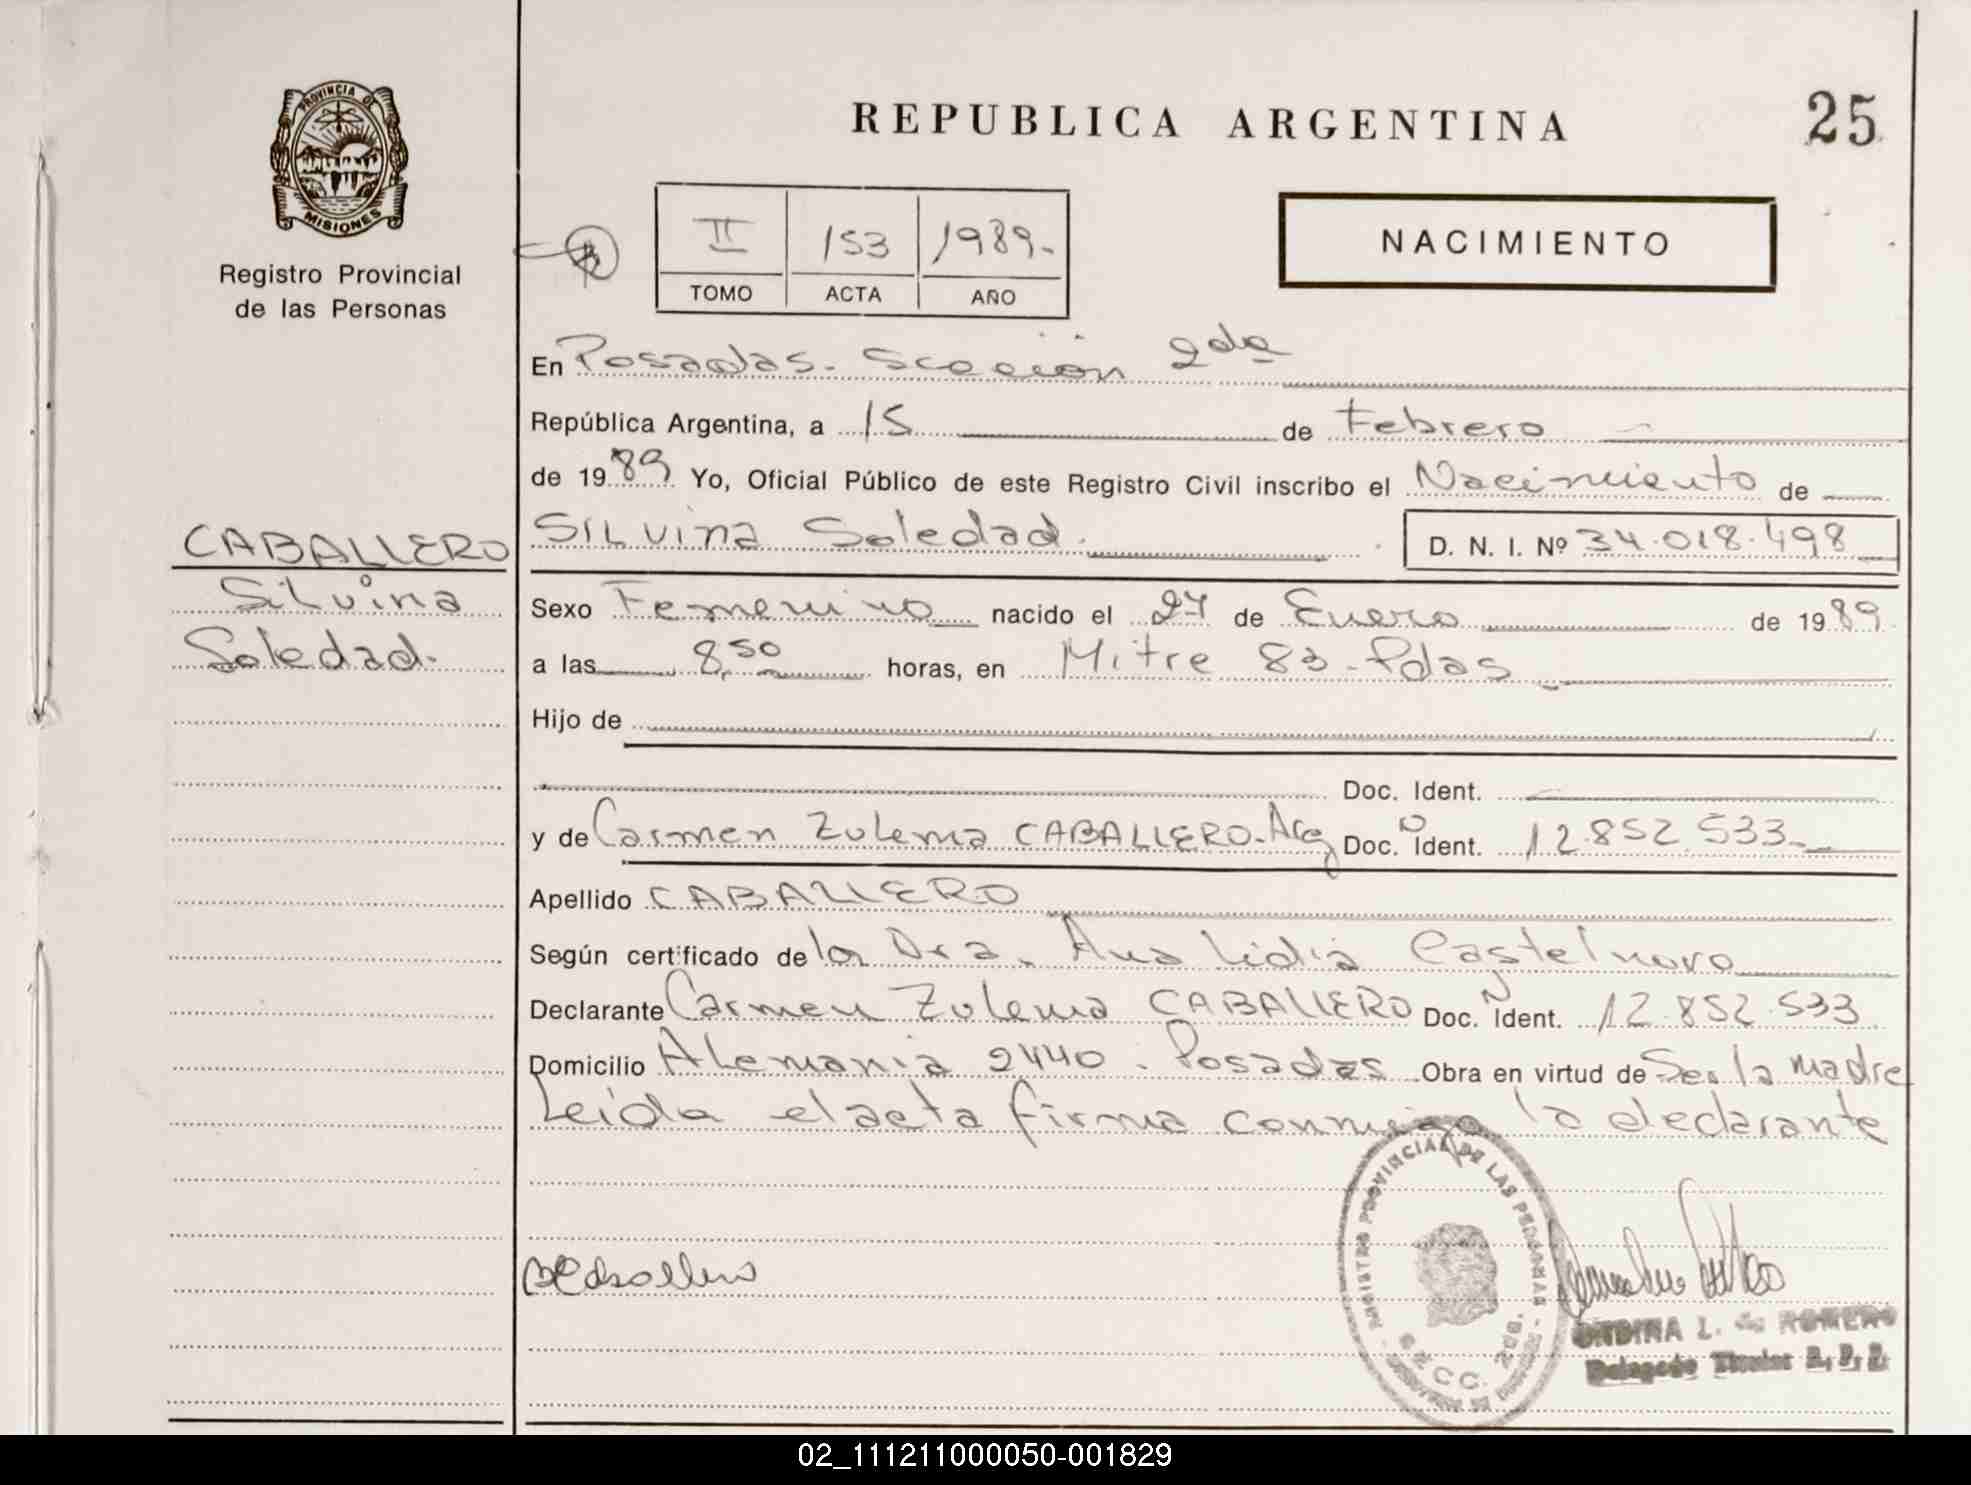 PROVINCIA DE
MISIONES
Registro Provincial
de las Personas
REPUBLICA ARGENTINA
25
II 153 1989.-
TOMO ACTA AÑO
NACIMIENTO
En Posadas. Sección 2da
República Argentina, a 15 de Febrero
de 1989 Yo, Oficial Público de este Registro Civil inscribo el Nacimiento de
CABALLERO
Silvina
Soledad.
SILvina Soledad. D. N. I. Nº 34.018.498
Sexo Femenino nacido el 27 de Enero de 1989.
a las 8,50 horas, en Mitre 83 - Pdas
Hijo de
Doc. Ident.
y de Carmen Zulema CABALLERO-Arg Doc. N Ident. 12.852.533.-
Apellido CABALLERO
Según certificado de la Dra. Ana Lidia Castelnovo
Declarante Carmen Zulema CABALLERO Doc. N Ident. 12.852.533
Domicilio Alemania 2440. Posadas Obra en virtud de Ser la madre
Leida el acta firma conmigo la declarante
REGISTRO PROVINCIAL DE LAS PERSONAS
SECC. 2da.
ONDINA L. de ROMERO
Delegado Titular R. P. P.
02_111211000050-001829